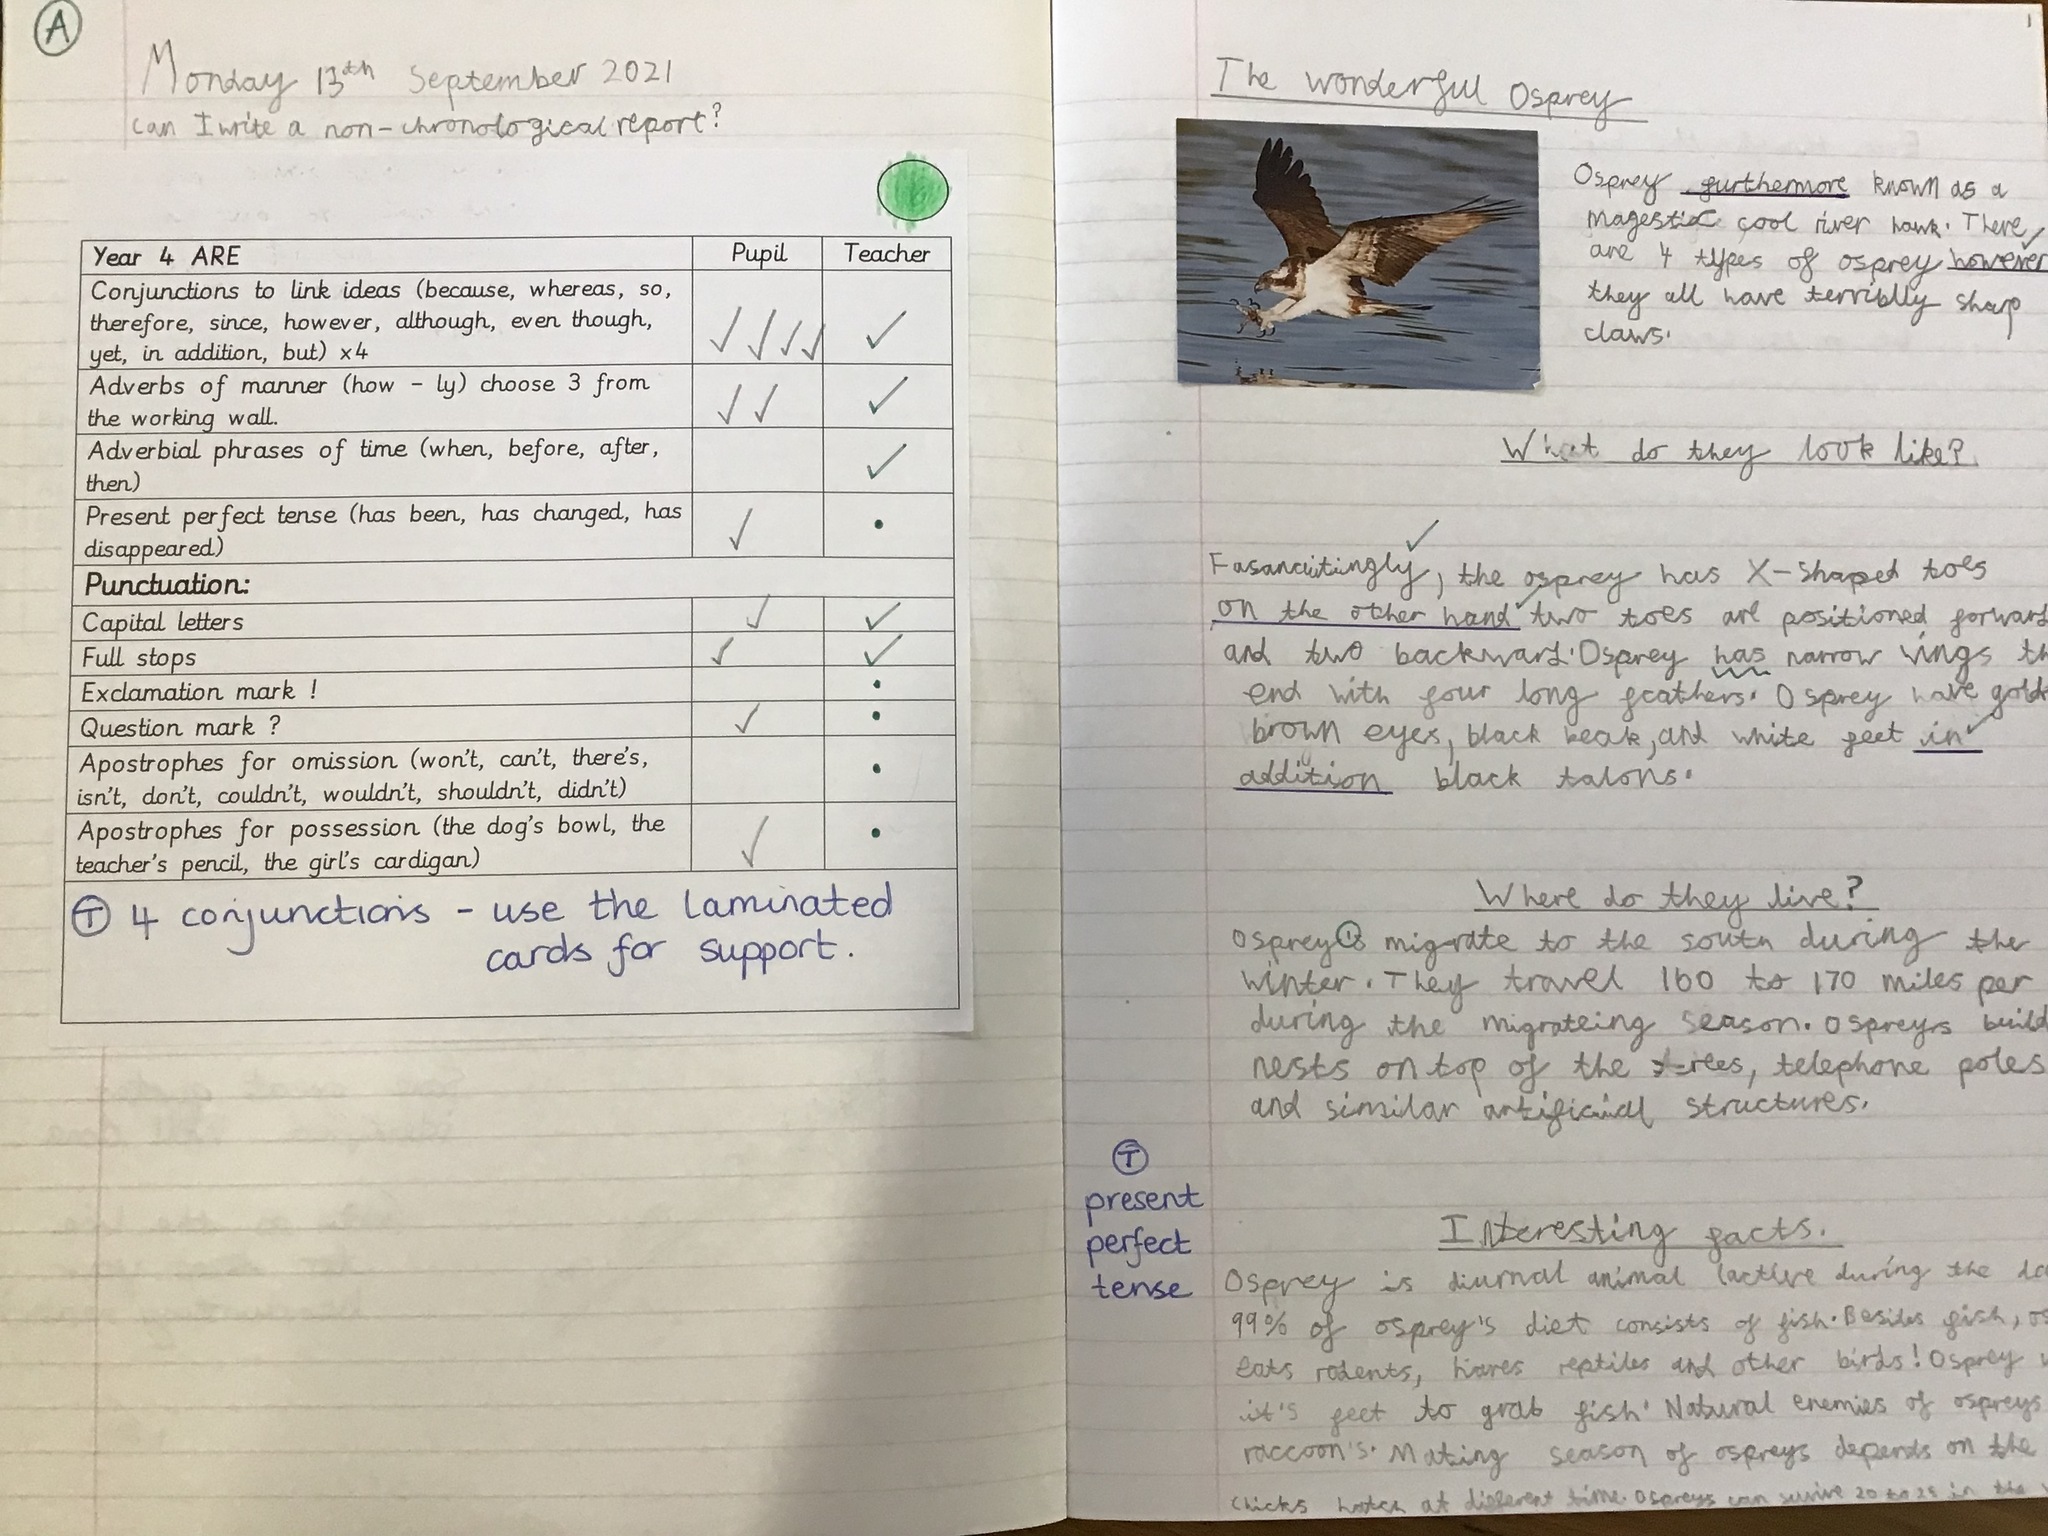 A
Monday 13th September 2021
Can I write a non-chronological report?
Year 4 ARE Pupil Teacher
Conjunctions to link ideas (because, whereas, so,
therefore, since, however, although, even though,
yet, in addition, but) x4
Adverbs of manner (how – ly) choose 3 from
the working wall.
Adverbial phrases of time (when, before, after,
then)
Present perfect tense (has been, has changed, has
disappeared)
Punctuation:
Capital letters
Full stops
Exclamation mark !
Question mark ?
Apostrophes for omission (won't, can't, there's,
isn't, don't, couldn't, wouldn't, shouldn't, didn't)
Apostrophes for possession (the dog's bowl, the
teacher's pencil, the girl's cardigan)
T 4 conjunctions - use the laminated
cards for support.
1
The wonderful Osprey
Osprey furthermore known as a
magestic cool river hawk. There
are 4 types of osprey however
they all have terriblly sharp
claws.
What do they look like?
Fasancitingly, the osprey has X-shaped toes
on the other hand two toes are positioned forward
and two backward. Osprey has narrow vings
end with four long feathers. Osprey have
brown eyes, black beak, and white feet in
addition black talons.
Where do they live?
Ospreys migrate to the south during the
winter. They travel 160 to 170 miles per
during the migrateing season. Ospreys build
nests on top of the trees, telephone poles
and similar artificial structures.
T
present
perfect
tense
Interesting facts.
Osprey is diurnal animal (active during the
99% of osprey's diet consists of fish. Besides fish,
eats rodents, hares reptiles and other birds! Osprey
it's feet to grab fish. Natural enemies of ospreys
raccoon's. Mating season of ospreys depends on the
chicks hatch at different time. Ospreys can survive 20 to 25 in the